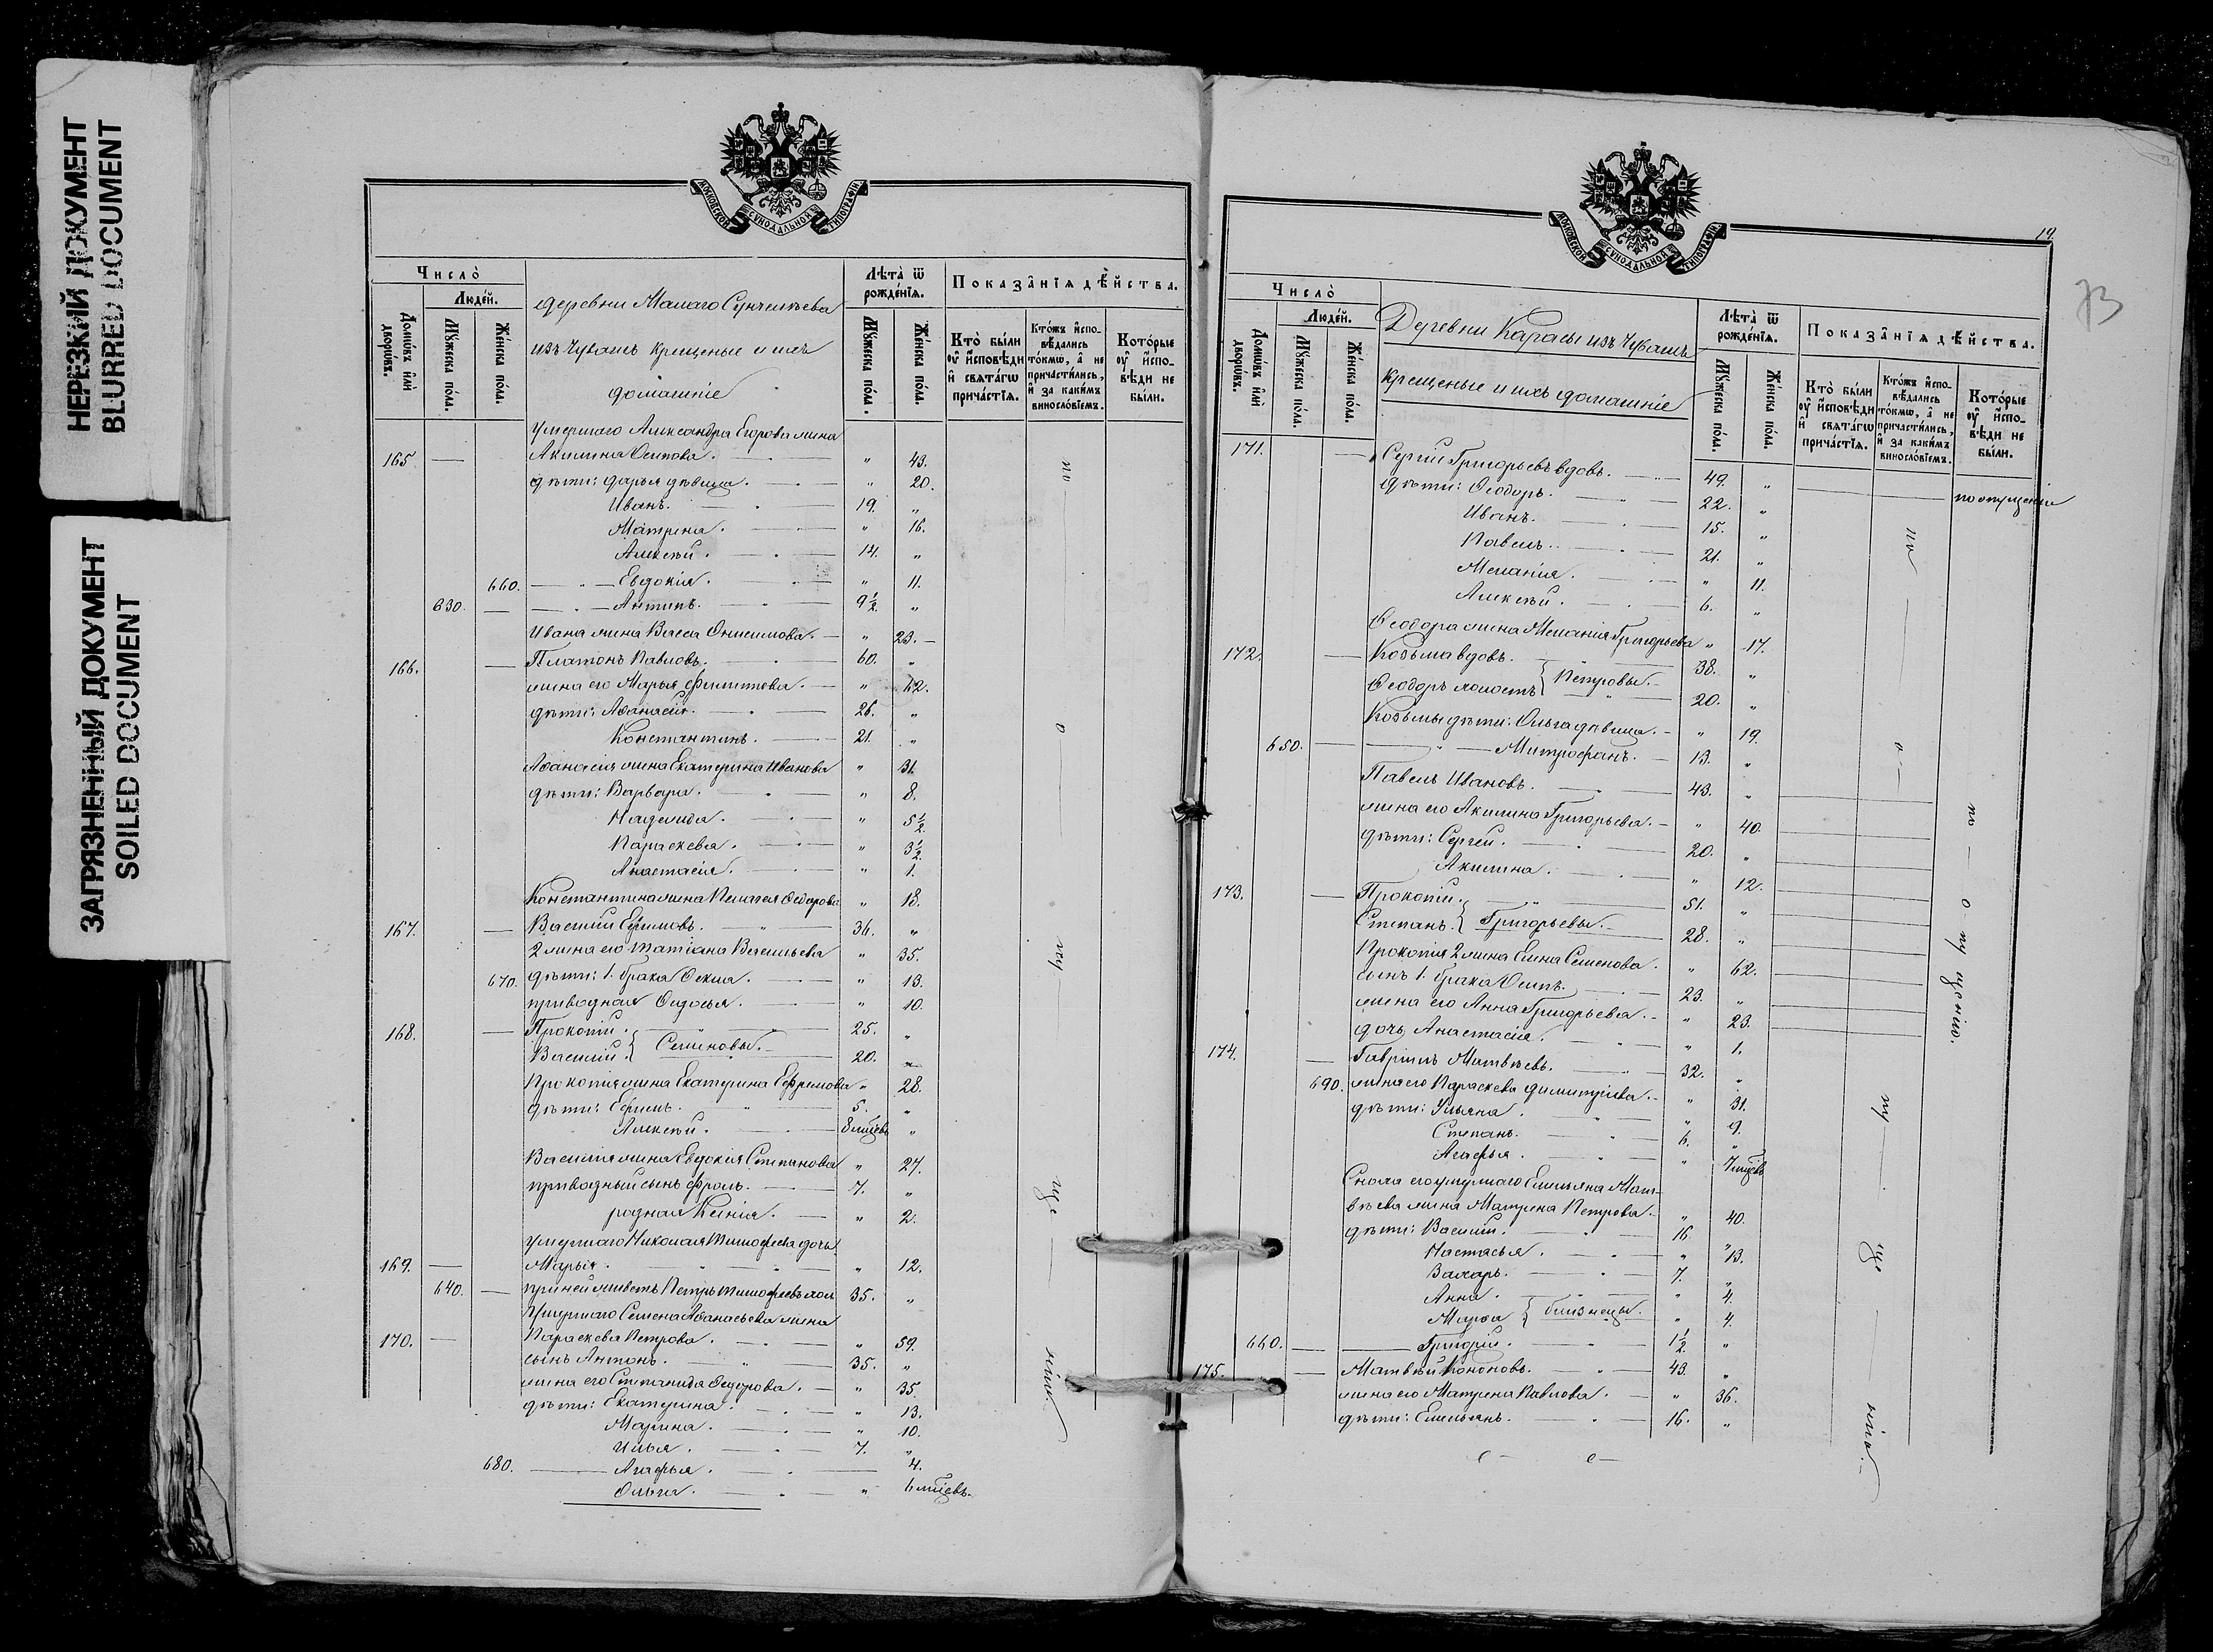 НЕРЕЗКИЙ ДОКУМЕНТ
BLURRED DOCUMENT
ЗАГРЯЗНЕННЫЙ ДОКУМЕНТ
SOILED DOCUMENT
МОСКОВСКОЙ СУНОДАЛЬНОЙ ТИПОГРАФІИ
Число̀
Людей.
Домѡвъ илѝ дворѡвъ.
Мꙋжеска пола.
Женска пола.
деревни Малаго Сунчелѣева
изъ Чувашъ крещеные и ихъ
домашніе
Лѣта̀ ѿ рожденїѧ.
Мꙋжеска пола.
Женска пола.
Показанїѧ дѣйства.
Кто̀ были оу исповѣди и свѧтагѡ причастїѧ.
Ктожъ исповѣдались токмѡ, а не причастились, и за какимъ винословїемъ.
Которые оу исповѣди не были.
умершаго Александра Егорова жена
165. Акилина Осипова. " 43.
дѣти: Дарья дѣвица. " 20.
Иванъ. 19. "
Матрена. " 16.
Алексѣй. 14. "
660. Евдокія. " 11.
630. Антипъ. 9½. "
Ивана жена Васса Онисимова. " 23.
166. Платонъ Павловъ. 60. "
жена его Марья Филиппова. " 62.
дѣти: Аѳанасій. 26. "
Константинъ. 21. "
Аѳанасія жена Екатерина Иванова " 31.
дѣти: Варвара. " 8.
Надежда. " 5½.
Параскева. " 3½.
Анастасія. " 1.
Константина жена Пелагея Ѳедорова " 18.
167. Василій Ефимовъ. 36. "
2 жена его Татіана Васильева " 35.
670. дѣти: 1. брака Ѳекла. " 13.
приводная Ѳедосья. " 10.
168. Прокопій. 25. "
Василій. } Семеновы. 20. "
Прокопія жена Екатерина Ефремова " 28.
дѣти: Ефимъ. 5. "
Алексѣй. 8 мцевъ "
Василія жена Евдокія Степанова " 27.
приводный сынъ Фролъ. 7. "
родная Ксенія. " 2.
умершаго Николая Тимофеева дочь
169. Марья. " 12.
640. при ней живетъ Петръ Тимофеевъ хол. 35. "
Умершаго Семена Аѳанасьева жена
170. Параскева Петрова. " 59.
сынъ Антонъ. 35. "
жена его Степанида Ѳедорова. " 35.
дѣти: Екатерина. " 13.
Марина. " 10.
Илья. 7. "
680. Агафья. 4.
Ольга. " 6 мцевъ.
по о пу ще нію.
МОСКОВСКОЙ СУНОДАЛЬНОЙ ТИПОГРАФІИ
19.
73
Число̀
Людей.
Домѡвъ илѝ дворѡвъ.
Мꙋжеска пола.
Женска пола.
Деревни Карасы изъ Чувашъ
крещеные и ихъ домашніе
Лѣта̀ ѿ рожденїѧ.
Мꙋжеска пола.
Женска пола.
Показанїѧ дѣйства.
Кто̀ были оу исповѣди и свѧтагѡ причастїѧ.
Ктожъ исповѣдались токмѡ, а не причастились, и за какимъ винословїемъ.
Которые оу исповѣди не были.
171. Сергій Григорьевъ вдовъ. 49. " по опущенію
дѣти: Ѳеодоръ. 22. "
Иванъ. 15. "
Павелъ. 21. "
Меланія. " 11.
Алексѣй. 6. "
Ѳеодора жена Меланія Григорьева " 17.
172. Козьма вдовъ. 38. "
Ѳеодоръ холостъ } Петровы. 20. "
Козьмы дѣти: Ольга дѣвица. " 19.
650. Митрофанъ. 13. "
Павелъ Ивановъ. 43. "
жена его Акилина Григорьева. " 40.
дѣти: Сергей. 20. "
Акилина. " 12.
173. Прокопій. 51. "
Степанъ. } Григорьевы. 28. "
Прокопія 2 жена Елена Семенова. " 62.
сынъ 1. брака Осипъ. 23. "
жена его Анна Григорьева. " 23.
дочь Анастасія. " 1.
174. Гаврилъ Матвѣевъ. 32. "
690. жена его Параскева Димитріева. " 31.
дѣти: Ульяна. " 9.
Степанъ. 6. "
Агафья. " 7 мцевъ
Сноха его умершаго Емельяна Мат-
вѣева жена Матрена Петрова. " 40.
дѣти: Василій. 16. "
Настасья. " 13.
Захаръ. 7. "
Анна. " 4.
Марѳа } близнецы. " 4.
660. Григорій. 1½ "
175. Матвѣй Кононовъ. 43. "
жена его Матрена Павлова. " 36.
дѣти: Емельянъ. 16. "
по о пу ще нію.
по о пущенію.